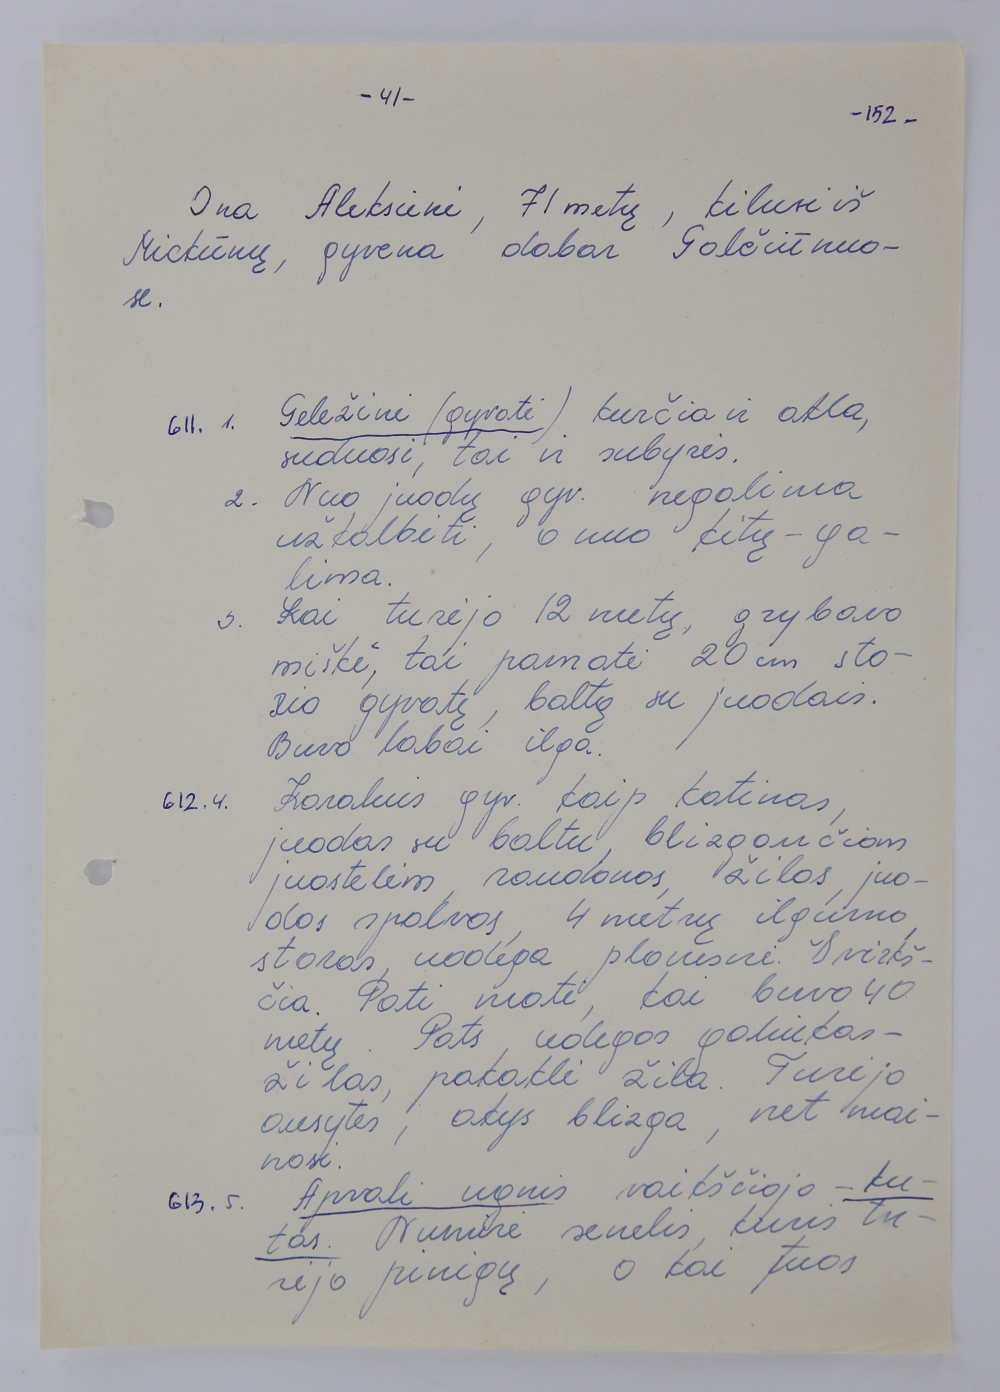 -41-
-152-
Ona Aleksienė, 71 metų, kilusi iš
Mickūnų, gyvena dabar Galčiūnuo-
se.
611. 1. Geležinė (gyvatė) kurčia ir akla,
suduosi, tai ir subyrės.
2. Nuo juodų gyv. negalima
užkalbėti, o nuo kitų - ga-
lima.
3. Kai turėjo 12 metų, grybavo
miške, tai pamatė 20 cm sto-
rio gyvatę, baltą su juodais.
Buvo labai ilga.
612. 4. Karalius gyv. kaip katinas,
juodas su baltu, blizgančiom
juostelėm, raudonos, žilos, juo-
dos spalvos, 4 metrų ilgumo,
storas, uodega plonesnė. Švirkš-
čia. Pati matė, kai buvo 40
metų. Pats uodegos galiukas -
žilas, pakaklė žila. Turėjo
ausytes, akys blizga, net mai-
nosi.
613. 5. Apvali ugnis vaikščiojo - ku-
tas. Numirė senelis, kuris tu-
rėjo pinigų, o kai juos